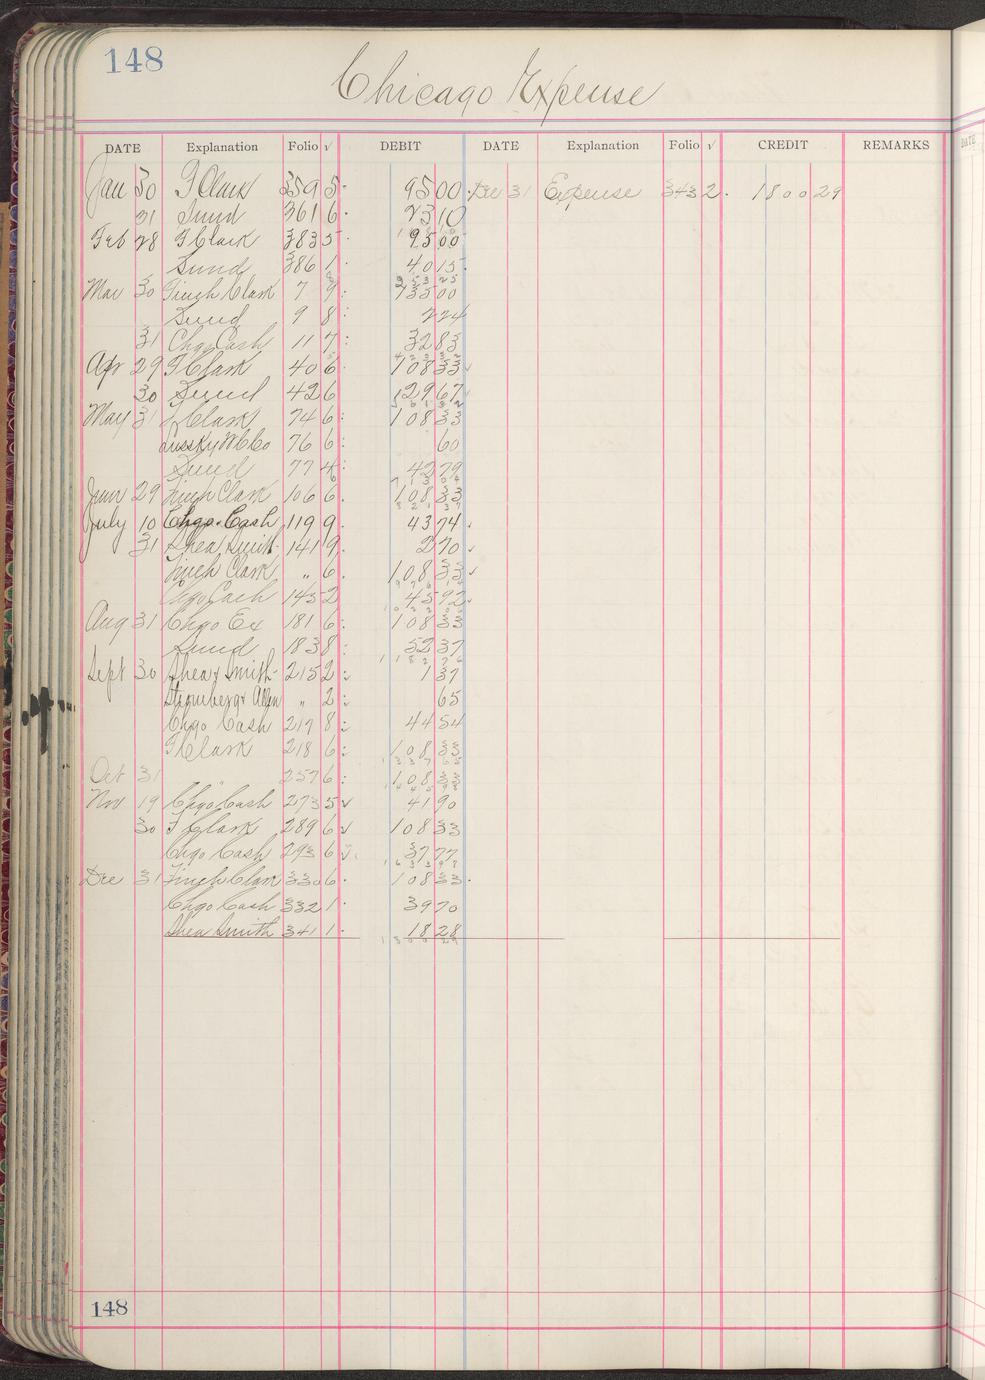 148
Chicago Expense
DATE Explanation Folio √ DEBIT DATE Explanation Folio √ CREDIT REMARKS
Jan 30 F Clark 359 5 95 00 Dec 31 Expense 343 2 1800 29
31 Sund 361 6 23 10
Feb 28 F Clark 383 5 95 00
Sund 386 1 40 15
Mar 30 Finch Clark 7 9 135 00
Sund 9 8 2 24
31 Chgo Cash 11 7 32 83
Apr 29 F Clark 40 6 108 33
30 Sund 42 6 129 67
May 31 F Clark 74 6 108 33
76 6 60
Sund 77 4 42 79
June 29 Finch Clark 106 6 108 33
July 10 Chgo Cash 119 9 43 74
31 Shea Smith 141 9 2 70
Finch Clark " 6 108 33
Chgo Cash 145 2 45 92
Aug 31 Chgo Ex 181 6 108 33
Sund 183 8 52 37
Sept 30 Shea & Smith 215 2 1 37
Stromberg & Allen " 2 65
Chgo Cash 217 8 44 54
F Clark 218 6 108 33
Oct 31 " 257 6 108 33
Nov 19 Chgo Cash 273 5 41 90
30 F Clark 289 6 108 33
Chgo Cash 293 6 37 77
Dec 31 Finch Clark 330 6 108 33
Chgo Cash 332 1 39 70
Shea Smith 341 1 18 28
148